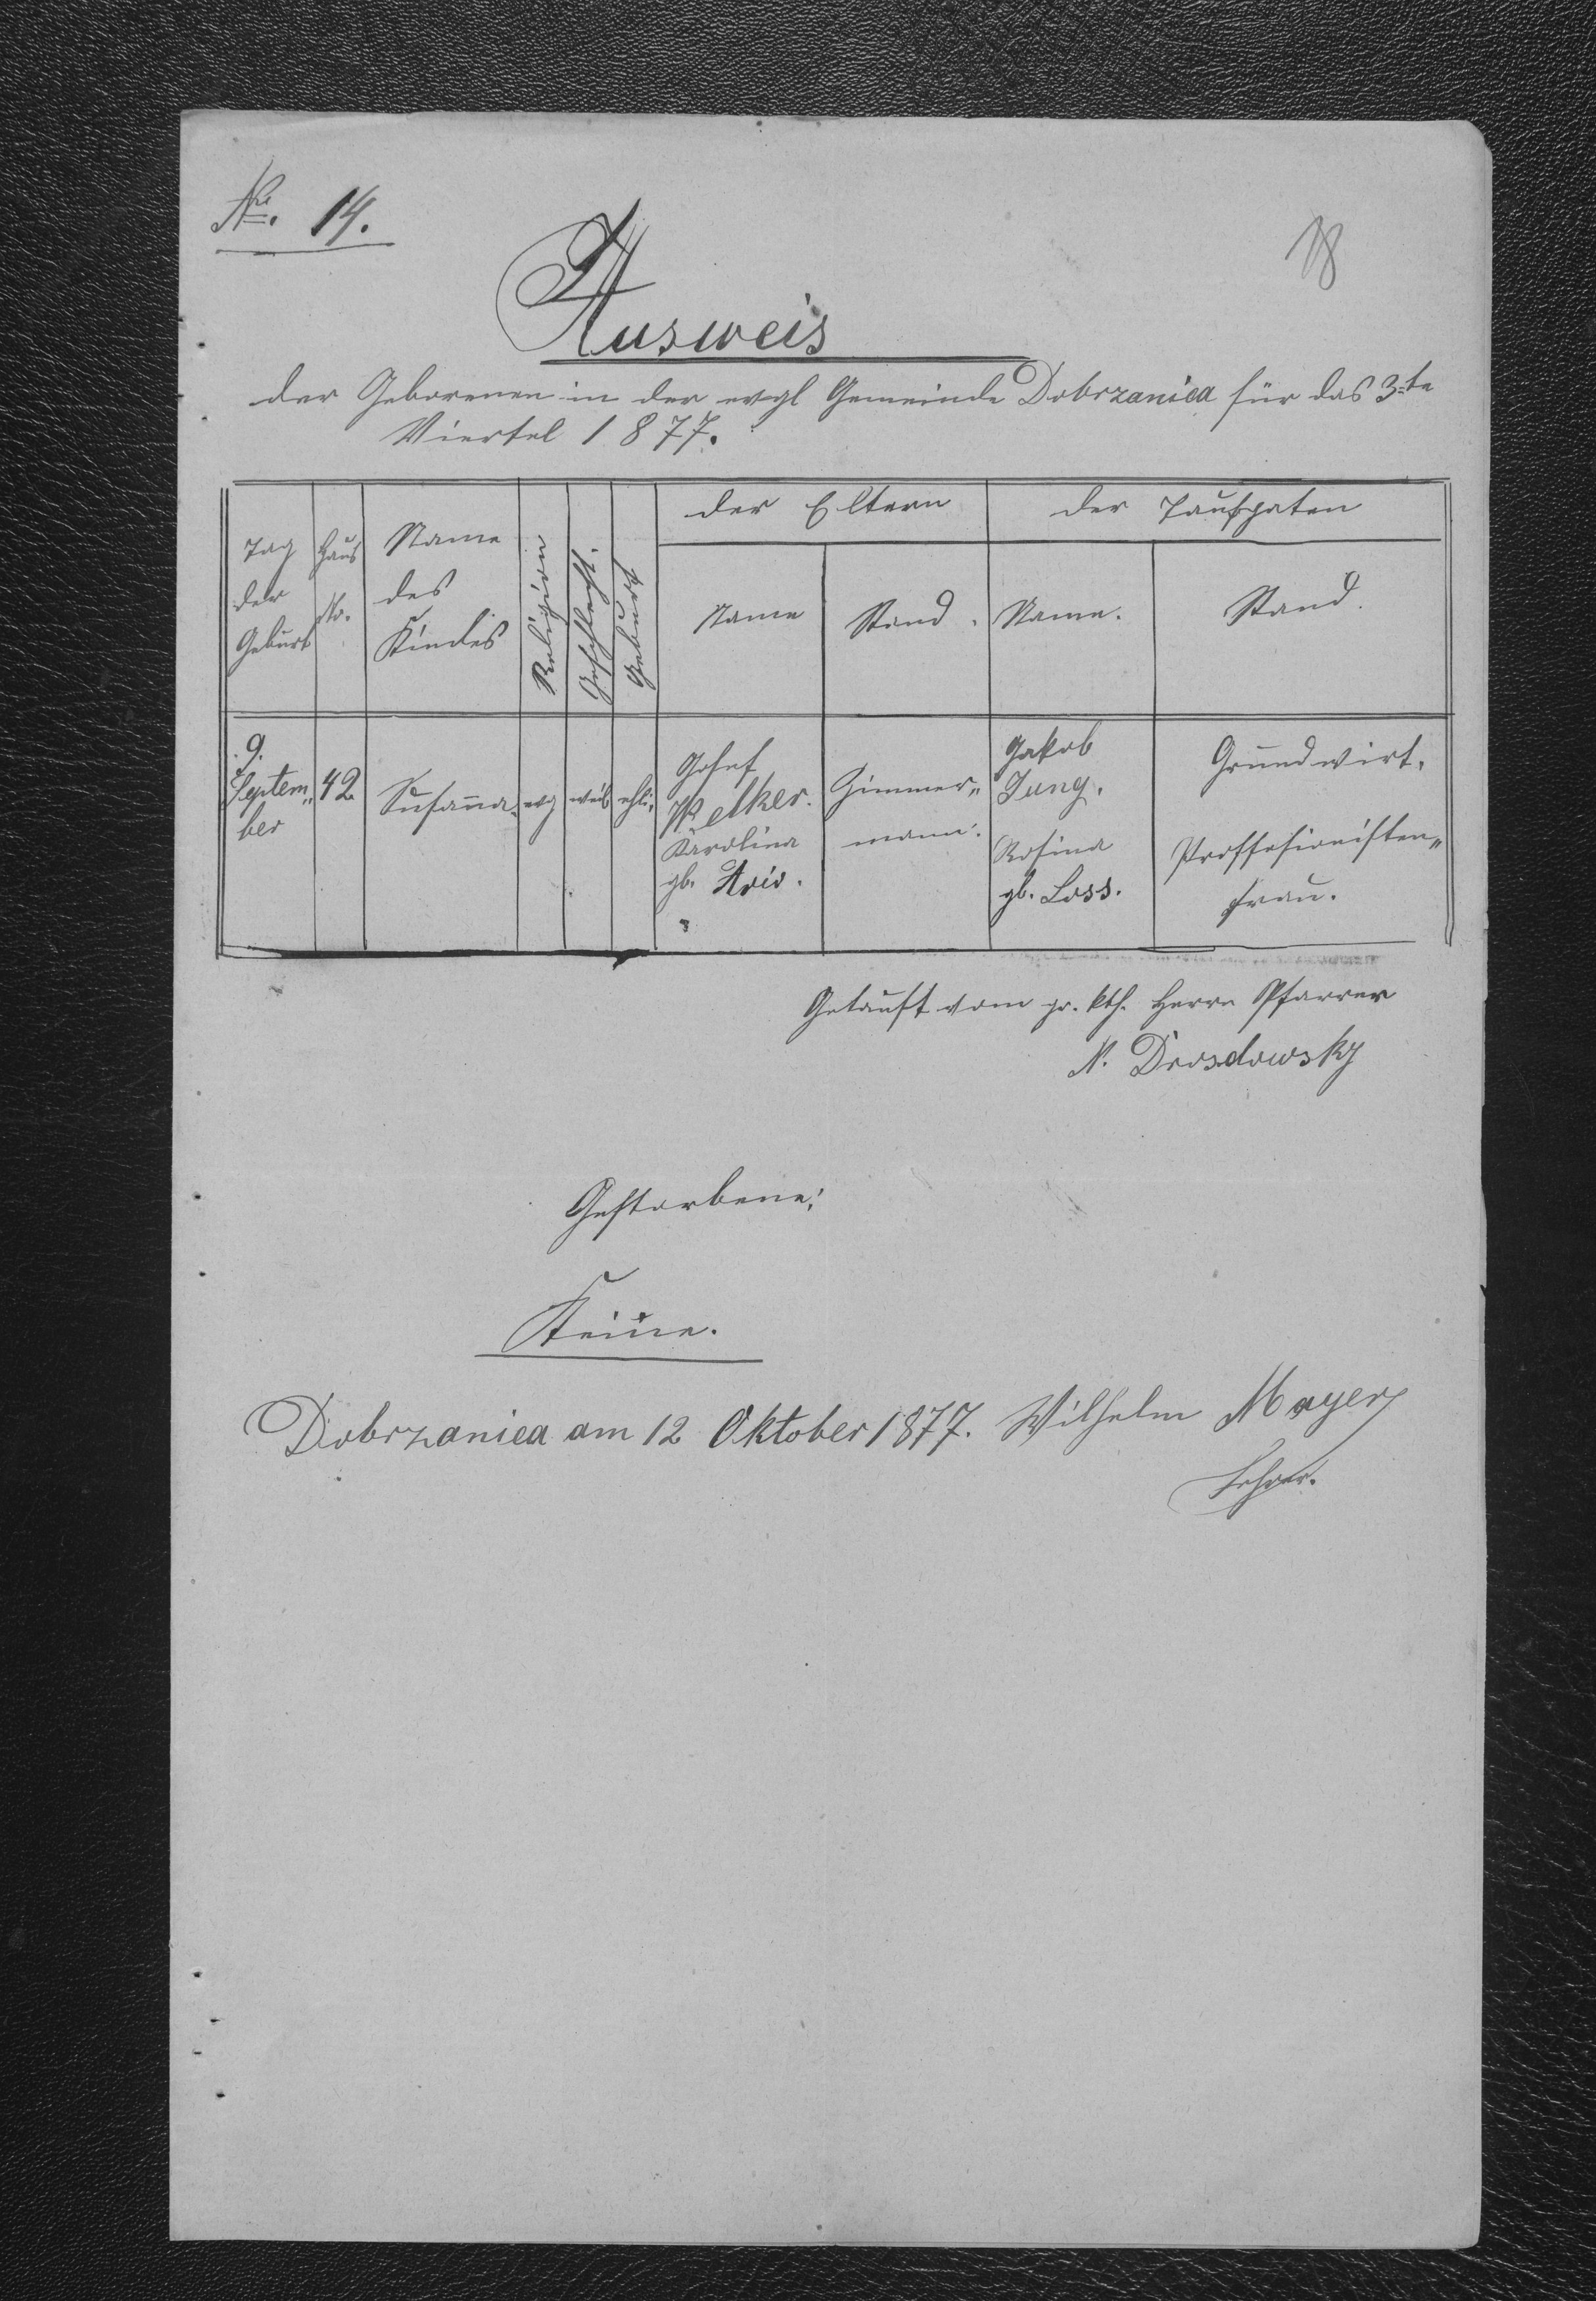 No. 14.
18
Ausweis
der Geborenen in der evgl Gemeinde Dobrzanica für das 3te
Viertel 1877.
Tag der Geburt
Haus No.
Name des Kindes
Religion
Geschlecht.
Geburt
der Eltern
Name
Stand.
der Taufpaten
Name.
Stand.
9.
Septem„
ber
42
Susanna.
evg
weib
ehli.
Josef
Welker.
Karolina
gb.
Zimmer„
mann.
Jakob
Jung.
Rosina
gb. Loss.
Grundwirt.
Proffesionisten„
frau.
Getauft vom gr. kth. Herrn Pfarrer
N. Drosdowsky
Gestorbene:
Keine.
Dobrzanica am 12 Oktober 1877. Wilhelm Mayer
Lehrer.